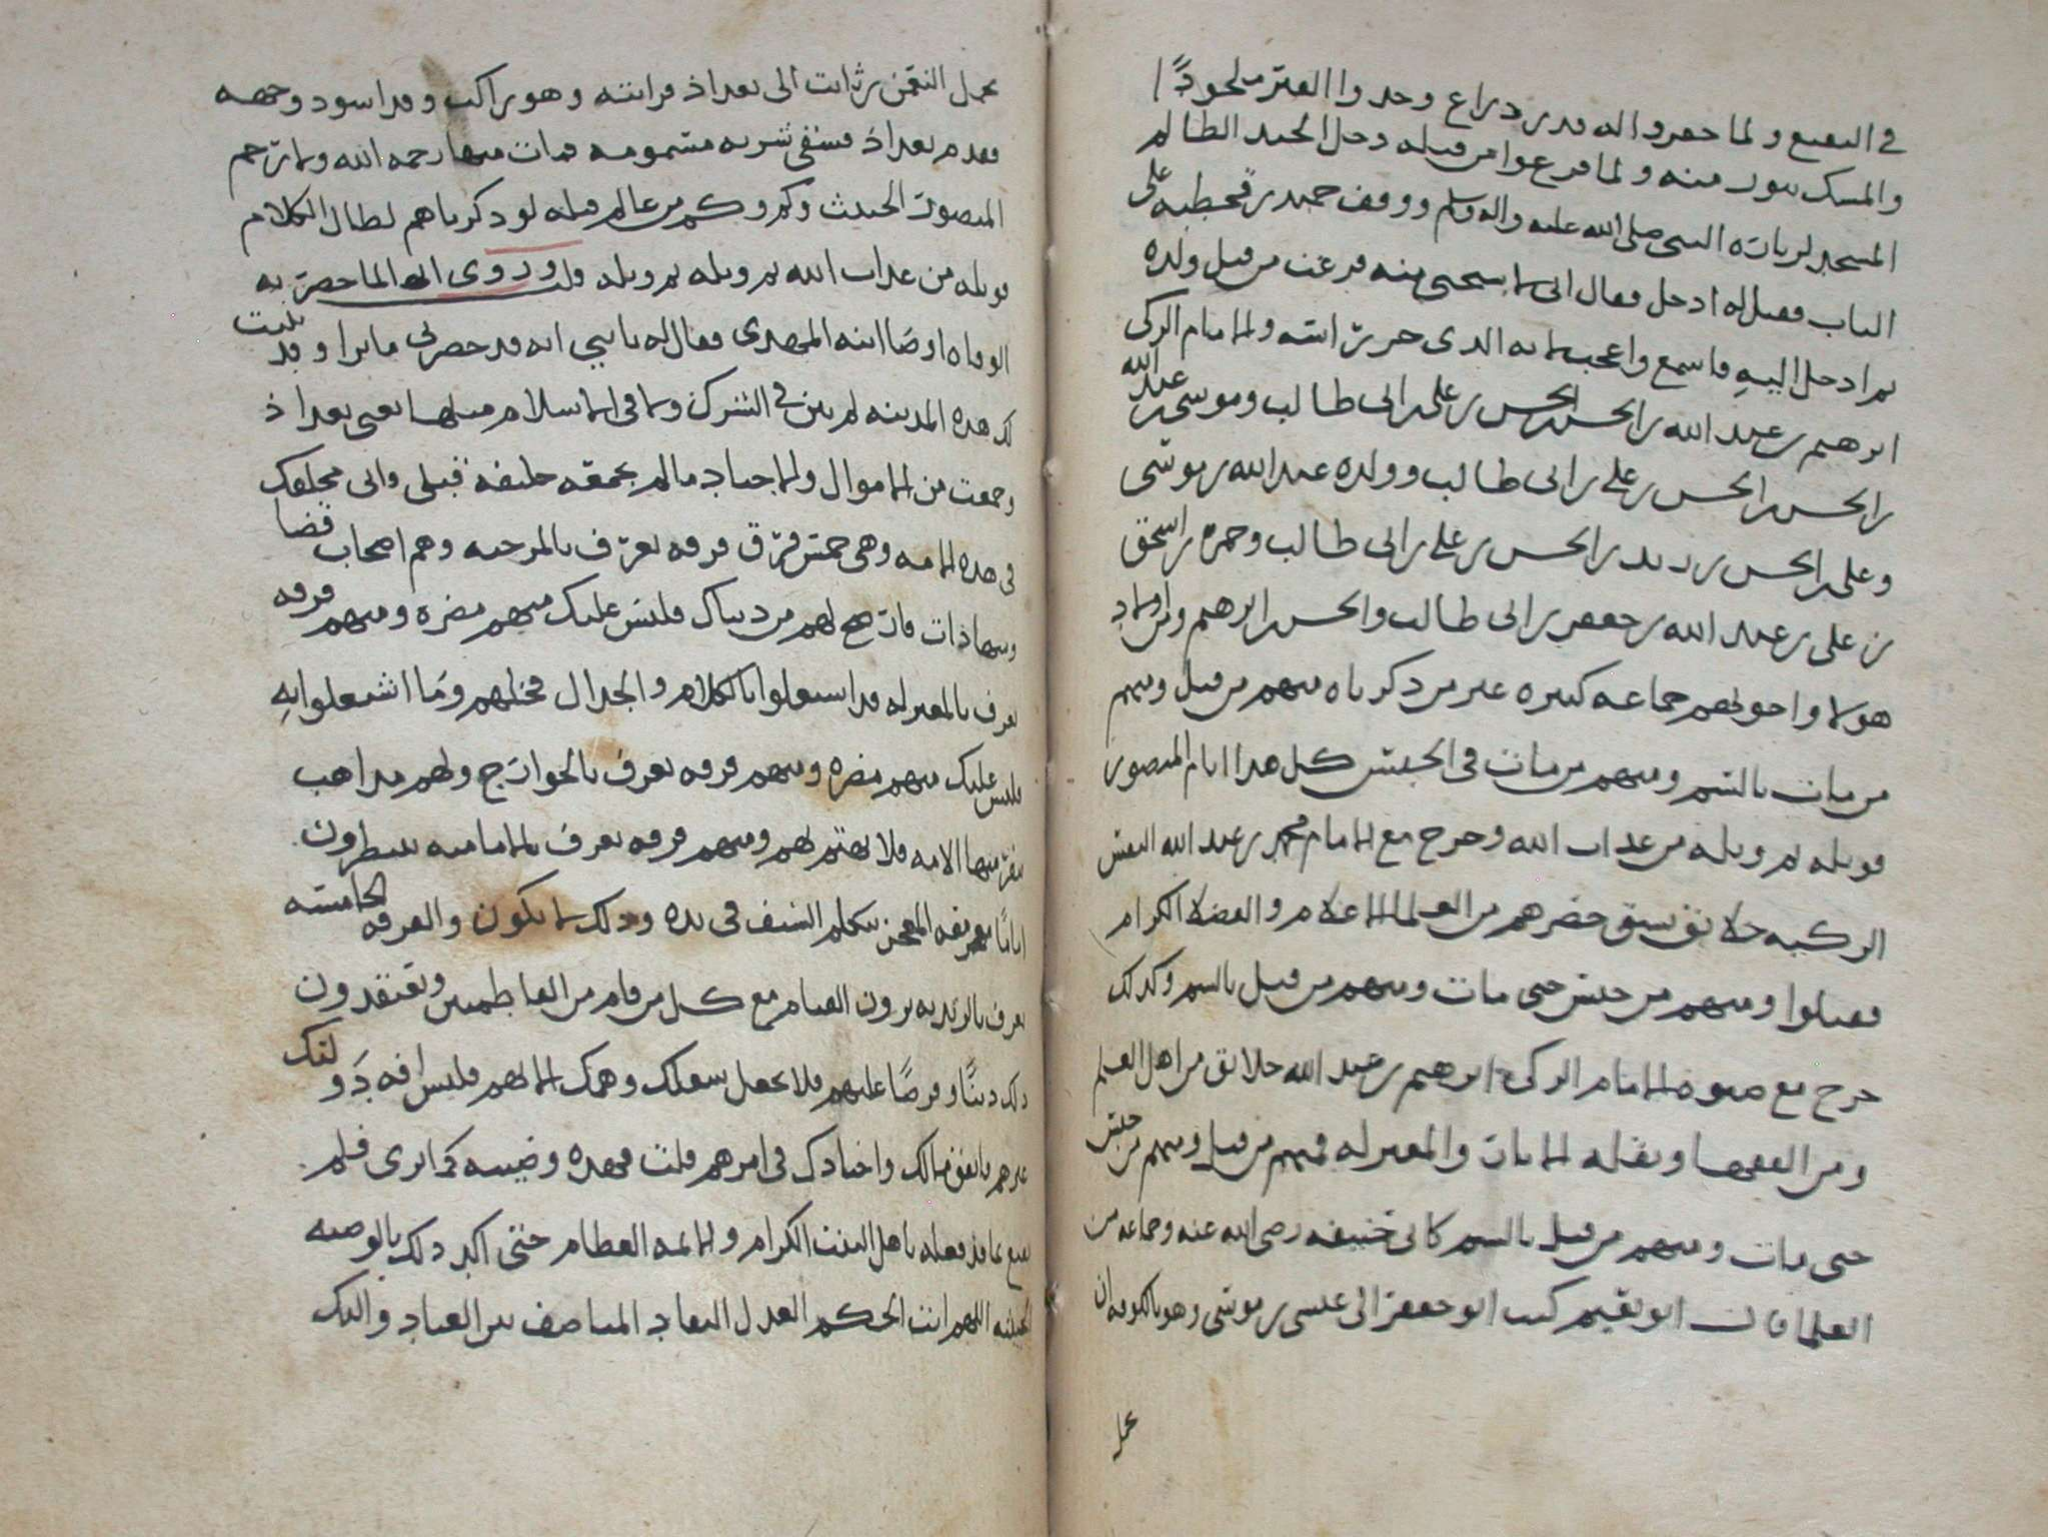 في البقيع ولما حفروا له قدر ذراع وجدوا القبر ملحودًا
والمسك يفور منه ولما فرغوا من قبله دخل الجند الظالم
المسجد لزيارة النبي صلى الله عليه واله وسلم ووقف حميد بن قحطبه على
الباب فقيل له ادخل فقال اني لاستحيي منه فرغت من قتل ولده
ثم ادخل اليه فاسمع واعجب لامة الذي حرت ابنته والامام الزكي
ابرهيم بن عبد الله بن الحسن بن الحسن بن علي بن ابي طالب وموسى بن عبد الله
بن الحسن بن الحسن بن علي بن ابي طالب وولده عبد الله بن موسى
وعلي بن الحسن بن زيد بن الحسن بن علي بن ابي طالب وحمزه بن اسحق
بن علي بن عبد الله بن جعفر بن ابي طالب والحسن بن ابرهيم ومن اولاد
هولا واخوتهم جماعه كثيره غير من ذكرناه منهم من قتل ومنهم
من مات بالسم ومنهم من مات في الحبس كل هذا ايام المنصور
فويله ثم ويله من عذاب الله وخرج مع الامام محمد بن عبد الله النفس
الزكيه خلائق سبق حضرهم من العلما الاعلام والفضلا الكرام
فقتلوا ومنهم من حبس حتى مات ومنهم من قتل بالسم وكذلك
خرج مع صنوه الامام الزكي ابرهيم بن عبد الله خلائق من اهل العلم
ومن الفقها ونقلة الاثار والمعتزله فمنهم من قتل ومنهم من حبس
حتى مات ومنهم من قتل بالسم كابي حنيفه رضي الله عنه وجماعه من
العلما قال ابو نعيم كتب ابو جعفر الى عيسى بن موسى وهو بالكوفه ان
يحمل
يحمل النعمن بن ثابت الى بغداذ فرايته وهو راكب وقد اسود وجهه
فقدم بغداذ فسقي شربه مسمومه فمات منها رحمه الله ولا ترحم
المنصور الخبيث وكم وكم من عالم قتله لو ذكرناهم لطال الكلام
فويله من عذاب الله ثم ويله ثم ويله قلت وروي انه لما حضرته
الوفاه اوصا ابنه المهدي فقال له يا بني انه قد حضر بي ما ترا وقد بنيت
لك هذه المدينه لم يبن في الشرك ولا في الاسلام مثلها يعني بغداذ
وجمعت من الاموال والاجناد ما لم يجمعه خليفه قبلي واني مخلفك
في هذه الامه وهي خمس فرق فرقه تعرف بالمرجيه وهم اصحاب قضا
وشهاذات فازتج لهم من دنياك فليس عليك منهم مضره ومنهم فرقه
تعرف بالمعتزله قد اشتغلوا بالكلام والجدال فخلهم وما اشتغلوا به
فليس عليك منهم مضره ومنهم فرقه تعرف بالخوارج ولهم مذاهب
تنفر منها الامه فلا تهتم لهم ومنهم فرقه تعرف بالاماميه ينتظرون
امامًا تعريفه المعجز يتكلم السيف في يده وذلك لا يكون والفرقه الخامسه
تعرف بالزيديه يرون القيام مع كل من قام من الفاطميين ويعتقدون
ذلك دينًا وفرضًا عليهم فلا تجعل شغلك وهمك الا لهم فليس افة دولتك
غيرهم يا انفق مالك واجنادك في امرهم قلت فهذه وصيته كما ترى فلم
يقنع بما قد فعله باهل البيت الكرام والائمه العظام حتى اكد ذلك بالوصيه
الخبيثه اللهم انت الحكم العدل النقاد المناصف بين العباد واليك